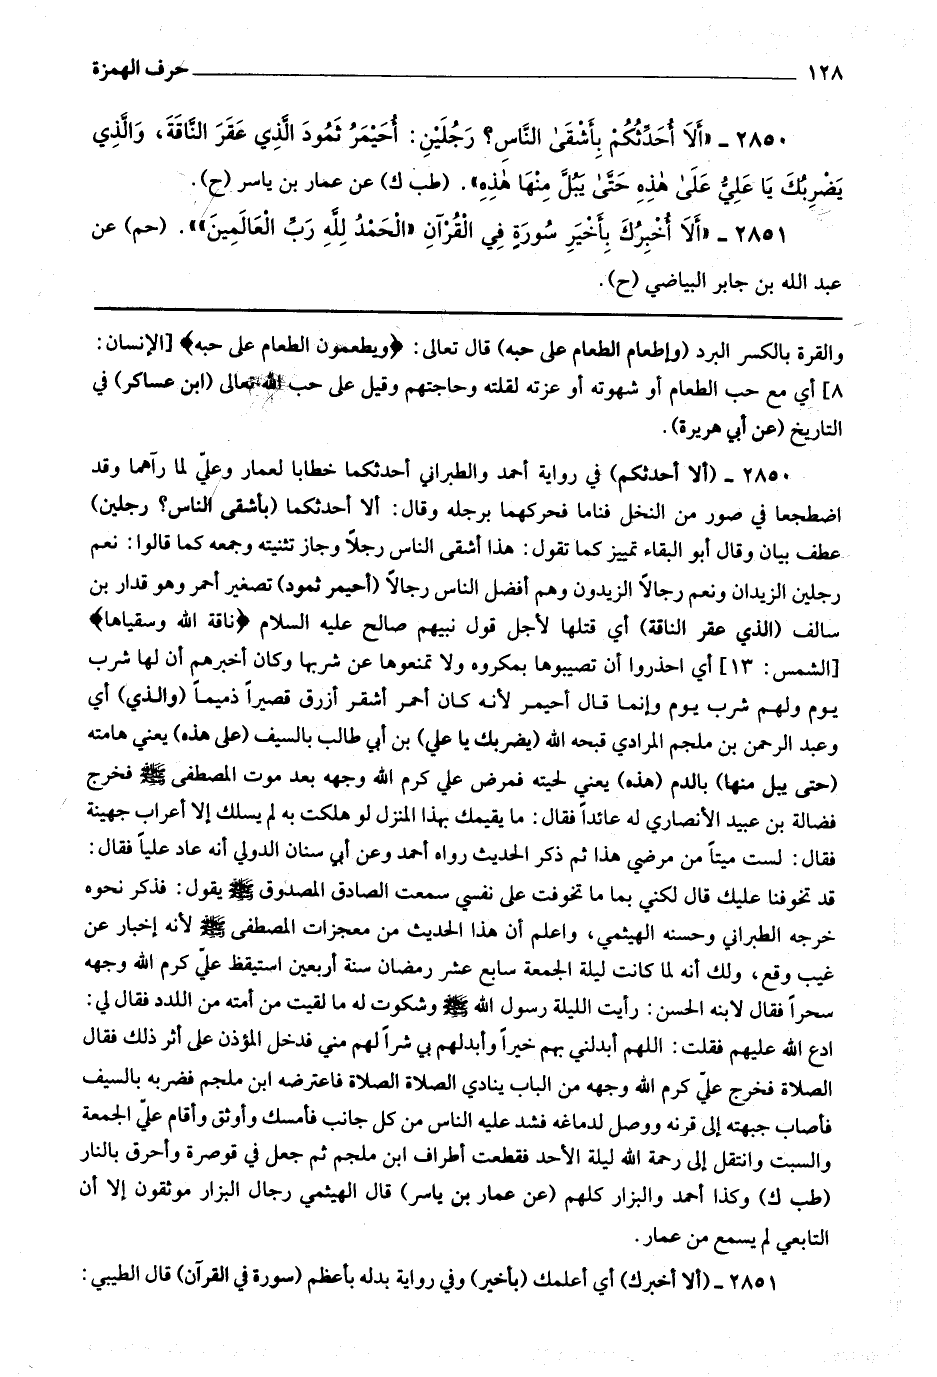 ١٢٨ حرف الهمزة
٢٨٥٠ ـ «أَلَا أُحَدِّثُكُمْ بِأَشْقَىٰ النَّاسِ؟ رَجُلَيْنِ: أُحَيْمَرُ ثَمُودَ الَّذِي عَقَرَ النَّاقَةَ، وَالَّذِي
يَضْرِبُكَ يَا عَلِيُّ عَلَىٰ هٰذِهِ حَتَّىٰ يَبُلَّ مِنْهَا هٰذِهِ». (طب ك) عن عمار بن ياسر (ح).
٢٨٥١ ـ «أَلَا أُخْبِرُكَ بِأَخْيَرِ سُورَةٍ فِي الْقُرْآنِ «الْحَمْدُ لِلَّهِ رَبِّ الْعَالَمِينَ»». (حم) عن
عبد الله بن جابر البياضي (ح).
والقرة بالكسر البرد (وإطعام الطعام على حبه) قال تعالى: ﴿ويطعمون الطعام على حبه﴾ [الإنسان:
٨] أي مع حب الطعام أو شهوته أو عزته لقلته وحاجتهم وقيل على حب الله تعالى (ابن عساكر) في
التاريخ (عن أبي هريرة).
٢٨٥٠ ـ (ألا أحدثكم) في رواية أحمد والطبراني أحدثكما خطابا لعمار وعليّ لما رآهما وقد
اضطجعا في صور من النخل فناما فحركهما برجله وقال: ألا أحدثكما (بأشقى الناس؟ رجلين)
عطف بيان وقال أبو البقاء تمييز كما تقول: هذا أشقى الناس رجلاً وجاز تثنيته وجمعه كما قالوا: نعم
رجلين الزيدان ونعم رجالاً الزيدون وهم أفضل الناس رجالاً (أحيمر ثمود) تصغير أحمر وهو قدار بن
سالف (الذي عقر الناقة) أي قتلها لأجل قول نبيهم صالح عليه السلام ﴿ناقة الله وسقياها﴾
[الشمس: ١٣] أي احذروا أن تصيبوها بمكروه ولا تمنعوها عن شربها وكان أخبرهم أن لها شرب
يوم ولهم شرب يوم وإنما قال أحيمر لأنه كان أحمر أشقر أزرق قصيراً ذميماً (والذي) أي
وعبد الرحمن بن ملجم المرادي قبحه الله (يضربك يا علي) بن أبي طالب بالسيف (على هذه) يعني هامته
(حتى يبل منها) بالدم (هذه) يعني لحيته فمرض علي كرم الله وجهه بعد موت المصطفى ﷺ فخرج
فضالة بن عبيد الأنصاري له عائداً فقال: ما يقيمك بهذا المنزل لو هلكت به لم يسلك إلا أعراب جهينة
فقال: لست ميتاً من مرضي هذا ثم ذكر الحديث رواه أحمد وعن أبي سنان الدولي أنه عاد علياً فقال:
قد تخوفنا عليك قال لكني بما ما تخوفت على نفسي سمعت الصادق المصدوق ﷺ يقول: فذكر نحوه
خرجه الطبراني وحسنه الهيثمي، واعلم أن هذا الحديث من معجزات المصطفى ﷺ لأنه إخبار عن
غيب وقع، ولك أنه لما كانت ليلة الجمعة سابع عشر رمضان سنة أربعين استيقظ عليّ كرم الله وجهه
سحراً فقال لابنه الحسن: رأيت الليلة رسول الله ﷺ وشكوت له ما لقيت من أمته من اللدد فقال لي:
ادع الله عليهم فقلت: اللهم أبدلني بهم خيراً وأبدلهم بي شراً لهم مني فدخل المؤذن على أثر ذلك فقال
الصلاة فخرج عليّ كرم الله وجهه من الباب ينادي الصلاة الصلاة فاعترضه ابن ملجم فضربه بالسيف
فأصاب جبهته إلى قرنه ووصل لدماغه فشد عليه الناس من كل جانب فأمسك وأوثق وأقام عليّ الجمعة
والسبت وانتقل إلى رحمة الله ليلة الأحد فقطعت أطراف ابن ملجم ثم جعل في قوصرة وأحرق بالنار
(طب ك) وكذا أحمد والبزار كلهم (عن عمار بن ياسر) قال الهيثمي رجال البزار موثقون إلا أن
التابعي لم يسمع من عمار.
٢٨٥١ ـ (ألا أخبرك) أي أعلمك (بأخير) وفي رواية بدله بأعظم (سورة في القرآن) قال الطيبي: